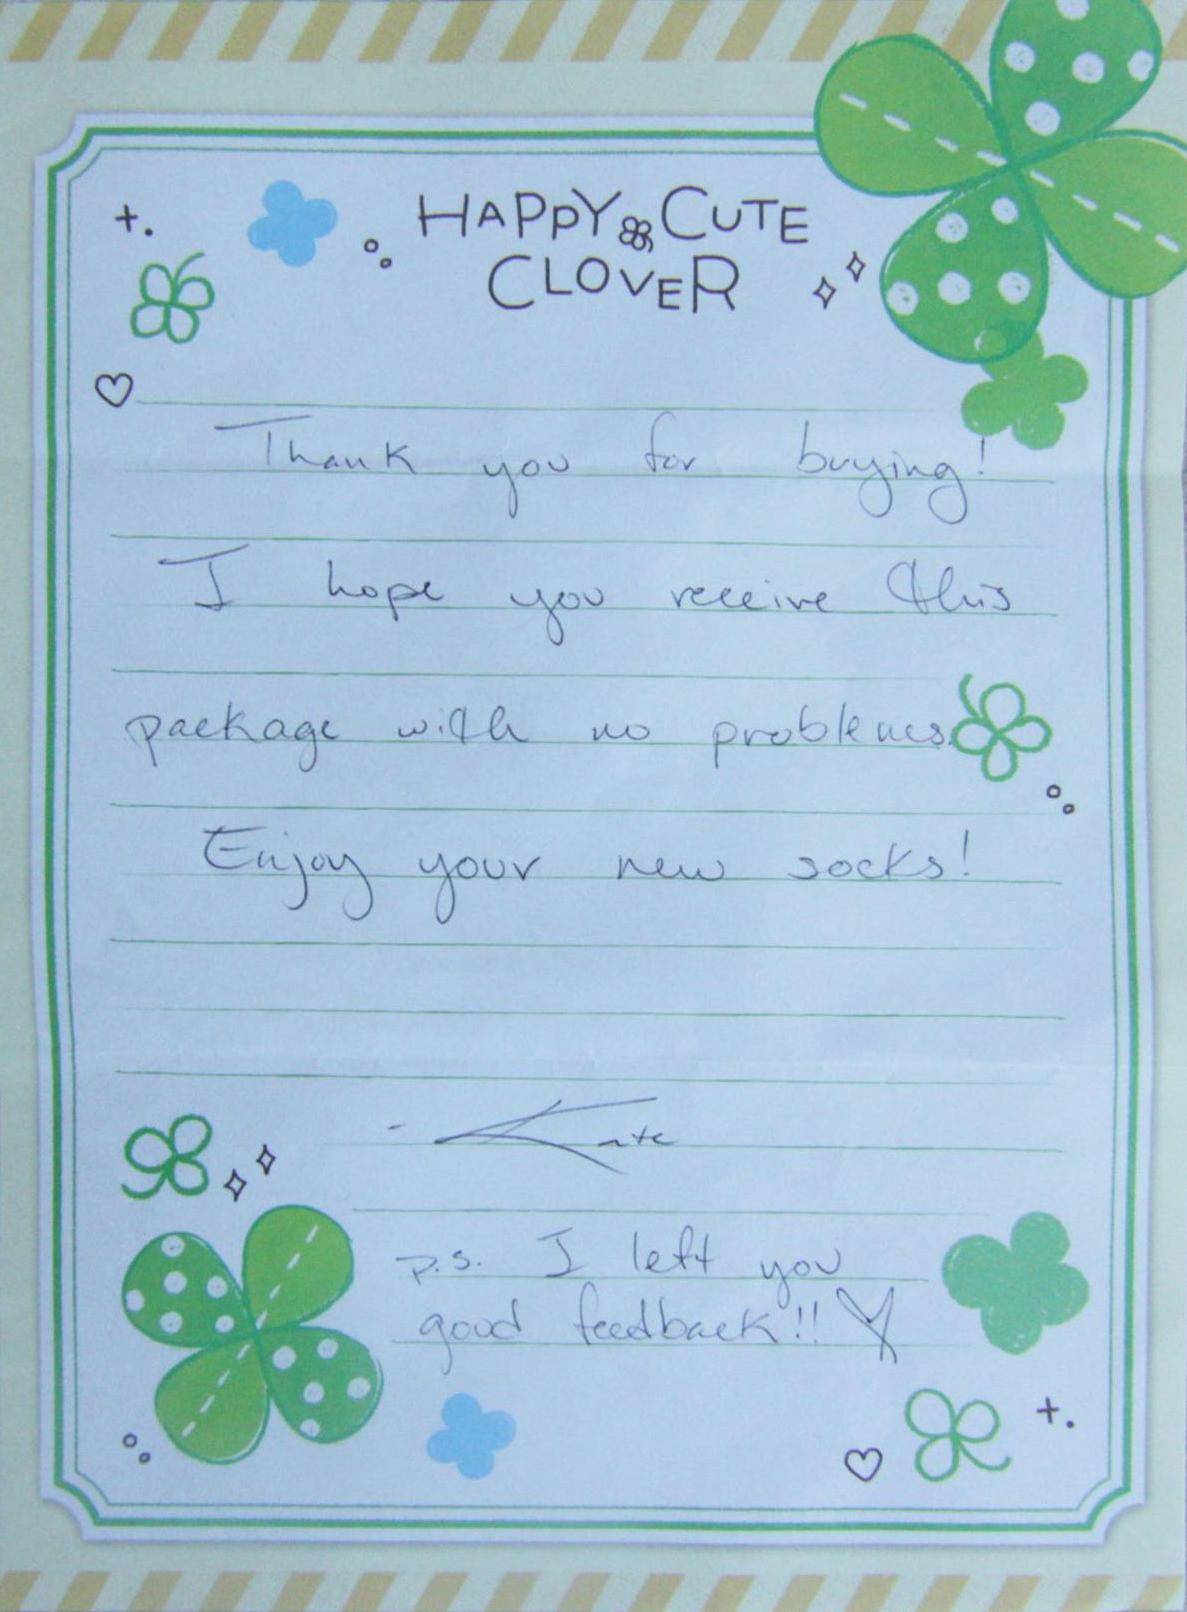 HAPPY CUTE
CLOVER
Thank you for buying!
I hope you receive this
package with no problems.
Enjoy your new socks!
- Kate
p.s. I left you
good feedback!!